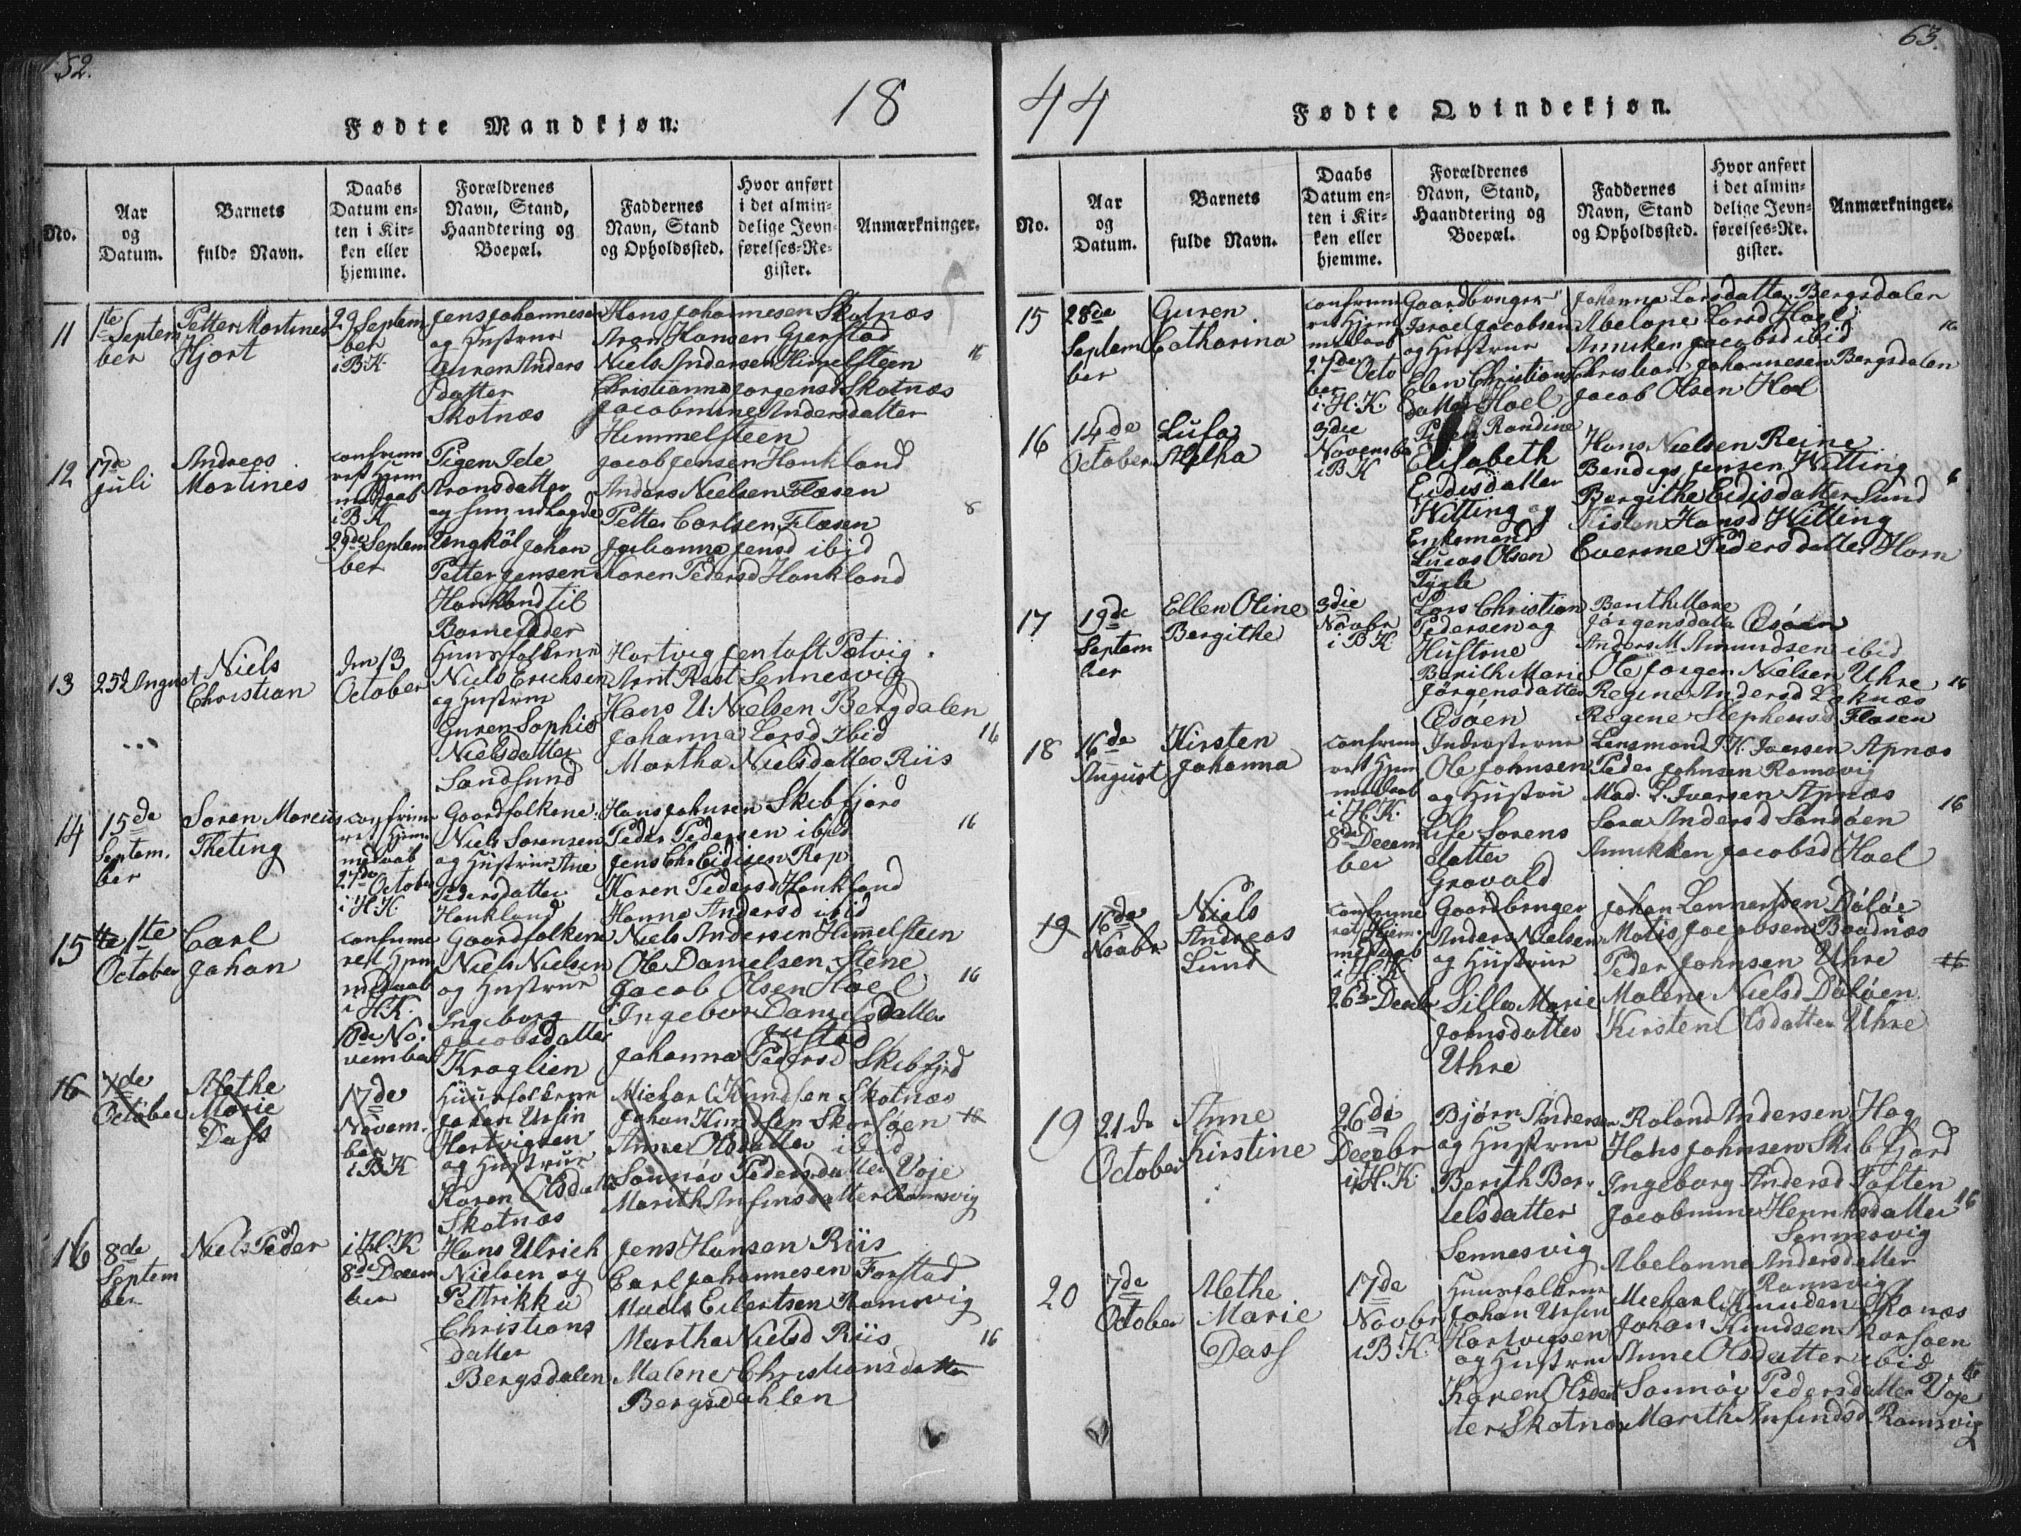 52.
18
Fødte Mandkjøn.
No.
Aar og Datum.
Barnets fulde Navn.
Daabs Datum enten i Kirken eller hjemme.
Forældrenes Navn, Stand, Haandtering og Boepæl.
Faddernes Navn, Stand og Opholdssted.
Hvor anført i det almindelige Jevnførelses-Register.
Anmærkninger.
11
1te Septem
ber
Petter Martines
Hjort
29 Septem
ber
i BK
Jens Johannesen
og Hustrue
Guren Anders
datter
Skotnæs
Hans Johannesen Skotnæs
Aron Hansen Gjerstad
Niels Andersen Himelsteen
Christianna Jørgensd Skotnæs
Jacobmine Andersdatter
Himmelsteen
16
12
17de
juli
Andreas
Martines
confirme
ret Hjem
medaab
i BK
29de Septem
ber
Pigen Ide
Aronsdatter
og hun udlagde
Ungkål Johan
Petter Jensen
Hankland til
Barnefader
Jacob Jensen Hankland
Anders Nielsen Flæsen
Petter Carlsen Flæsen
Johanna Jensd ibid
Karen Pedersd Hankland
8
13
25de August
Niels
Christian
den 13
October
Huusfolkene
Niels Erichsen
og Hustrue
Guren Sophie
Nielsdatter
Sandsund
Hartvig Jentoft Petvig
Arnt Rast Sennesvig
Hans U: Nielsen Bergdalen
Johanna Larsd Ibid
Martha Nielsdatter Riis
16
14
15de
Septem.
ber
Søren Marcus
Theting
confirme
ret Hjem
medaab
27de October
i H.K
Gaardfolkene
Niels Sørensen
og Hustrue Ane
Pedersdatter
Hankland
Hans Johnsen Skibfjord
Peder Pedersen ibid
Jens Chr Eidisen Rep
Karen Pedersd Hankland
Hanna Andersd ibid
16
15
1te
October
Carl
Johan
confirme
ret Hjem
medaab
i HK.
10de No.
vember
Gaardfolkene
Niels Nielsen
og Hustrue
Ingeborg
Jacobsdatter
Kraglien
Niels Andersen Himelsteen
Ole Danielsen Stene
Jacob Olsen Hoel
Ingebor Danielsdatter
Justad
Johanna Pedersd Skibfjrd
16
16
7de
October
Alethe
Marie
Dass
17de
Novem.
ber
i BK
Huusfolkene
Johan Ursin
Hartvigsen
og Hustrue
Karen Olsdatter
Skotnæs
Michael Knudsen Skotnæs
Johan Knudsen Skarsøen
Anne Olsdatter ibid
Sønnøv Pedersdatter Voje
Marith Anfinsdatter Ramsvig
16
16
8de
Septem
ber
Niels Peder
i H.K
8de Decem
ber
Hans Ulrich
Nielsen og
Pettrikka
Christians
datter
Bergsdalen
Jens Hansen Riis
Carl Johannesen Forstad
Mads Eilertsen Ramsvig
Martha Nielsd Riis
Malene Christiansdatter
Bergsdahlen
16
63.
44
Fødte Qvindekjøn.
No.
Aar og Datum.
Barnets fulde Navn.
Daabs Datum enten i Kirken eller hjemme.
Forældrenes Navn, Stand, Haandtering og Boepæl.
Faddernes Navn, Stand og Opholdssted.
Hvor anført i det almindelige Jevnførelses-Register.
Anmærkninger.
15
28de
Septem
ber
Guren
Catharina
confirme
ret Hjem
medaab
27de Octo
ber
i H.K.
Gaardbruger
Israel Jacobsen
og Hustrue
Elen Christians
datter Hoel
Johanna Larsdatter Bergsdalen
Abelone Larsd Hoel
Anniken Jacobsd ibid
Christian Johannesen Bergsdalen
Jacob Olsen Hoel
16
16
14de
October
Lusa
Aletha
3die
November
i BK
Pigen Randine
Elisabeth
Eidisdatter
Witting og
Enkemand
Lucas Olsen
Tygle
Hans Nielsen Reine
Bendigs Jensen Witting
Bergithe Eidisdatter Sund
Kisten Hansd Witting
Everine Pedersdatter Horn
6
17
19de
Septem
ber
Ellen Oline
Bergithe
3die
Novbr
i BK
Lars Christian
Pedersen og
Hustrue
Berith Marie
Jørgensdatter
Æsøen
Berith Marie
Jørgensdatter Æsøen
Anders M Amundsen ibid
Ole Jørgen Nielsen Uhre
Regine Andersd Leknæs
Regine Stephensd Flæsen
16
18
16de
August
Kirsten
Johanna
confirme
ret Hjem
medaab
i H.K.
8de Decem
ber
Indersterne
Ole Johnsen
og Hustru
Lise Sørens
datter
Gravald
Lensmand J.K. Iversen Apnæs
Peder Johnsen Ramsvig
Mad. L. Iversen Apnæs
Sara Andersd Sandøen
Annikken Jacobsd Hoel
16
19
16de
Novbr
Niels
Andreas
Lund
confirme
ret Hjem
medaab
i H.K
26de Decbr
Gaardbruger
Anders Nielsen
og Hustrue
Sille Marie
Johnsdatter
Uhre
Johan Lennertsen Båløe
Matis Jacobsen Boadnæs
Peder Johnsen Uhre
Malene Nielsd Båløen
Kirsten Olsdatter Uhre
16
19
21de
October
Anne
Kirstine
26de
Decebr
i H.K.
Bjørn Andersen
og Hustrue
Berith Ber.
telsdatter
Sennesvig
Roland Andersen Hag
Hans Johnsen Skibfjord
Ingeborg Andersd Toften
Jacobmine Henriksdatter
Sennesvig
Abelonne Andersdatter
Ramsvig
16
20
7de
October
Alethe
Marie
Dass
17de
Novbr
i B.K.
Huusfolkene
Johan Ursin
Hartvigsen
og Hustrue
Karen Olsdat
ter Skotnæs
Michael Knudsen Skotnæs
Johan Knudsen Skarsøen
Anne Olsdatter ibid
Sønnøv Pedersdatter Voje
Marith Anfindsd Ramsvig
16